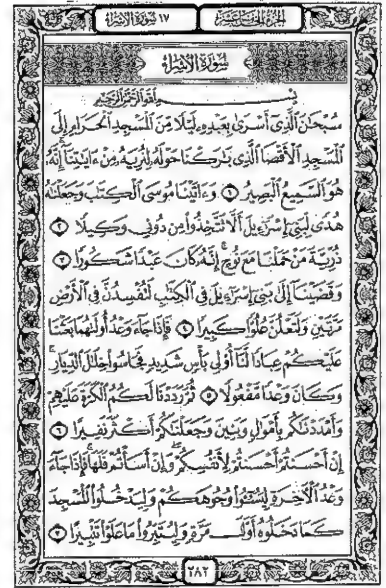 ١٧ سورة الإسراء
الجزء الخامس عشر
سورة الإسراء
بسم الله الرحمن الرحيم
سُبْحَانَ الَّذِي أَسْرَىٰ بِعَبْدِهِ لَيْلًا مِّنَ الْمَسْجِدِ الْحَرَامِ إِلَى
الْمَسْجِدِ الْأَقْصَا الَّذِي بَارَكْنَا حَوْلَهُ لِنُرِيَهُ مِنْ ءَايَاتِنَا إِنَّهُ
هُوَ السَّمِيعُ الْبَصِيرُ ١ وَءَاتَيْنَا مُوسَى الْكِتَابَ وَجَعَلْنَاهُ
هُدًى لِّبَنِي إِسْرَاءِيلَ أَلَّا تَتَّخِذُوا مِن دُونِي وَكِيلًا ٢
ذُرِّيَّةَ مَنْ حَمَلْنَا مَعَ نُوحٍ إِنَّهُ كَانَ عَبْدًا شَكُورًا ٣
وَقَضَيْنَا إِلَىٰ بَنِي إِسْرَاءِيلَ فِي الْكِتَابِ لَتُفْسِدُنَّ فِي الْأَرْضِ
مَرَّتَيْنِ وَلَتَعْلُنَّ عُلُوًّا كَبِيرًا ٤ فَإِذَا جَاءَ وَعْدُ أُولَاهُمَا بَعَثْنَا
عَلَيْكُمْ عِبَادًا لَّنَا أُولِي بَأْسٍ شَدِيدٍ فَجَاسُوا خِلَالَ الدِّيَارِ
وَكَانَ وَعْدًا مَّفْعُولًا ٥ ثُمَّ رَدَدْنَا لَكُمُ الْكَرَّةَ عَلَيْهِمْ
وَأَمْدَدْنَاكُم بِأَمْوَالٍ وَبَنِينَ وَجَعَلْنَاكُمْ أَكْثَرَ نَفِيرًا ٦
إِنْ أَحْسَنتُمْ أَحْسَنتُمْ لِأَنفُسِكُمْ وَإِنْ أَسَأْتُمْ فَلَهَا فَإِذَا جَاءَ
وَعْدُ الْآخِرَةِ لِيَسُـُٔوا وُجُوهَكُمْ وَلِيَدْخُلُوا الْمَسْجِدَ
كَمَا دَخَلُوهُ أَوَّلَ مَرَّةٍ وَلِيُتَبِّرُوا مَا عَلَوْا تَتْبِيرًا ٧
٢٨٢